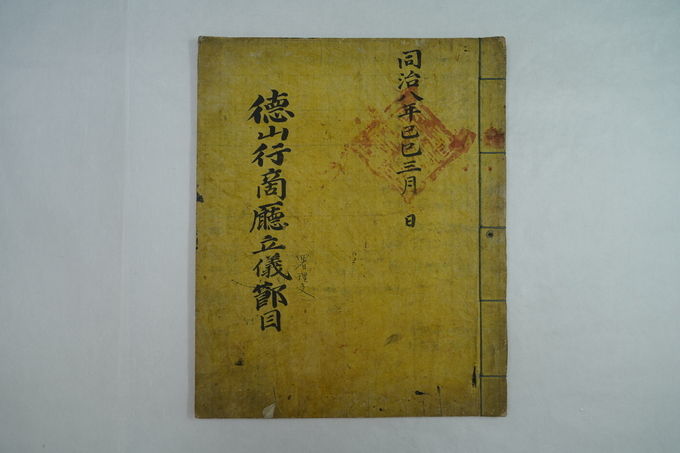 同治八年己巳三月 日
德山行商廳立儀節目